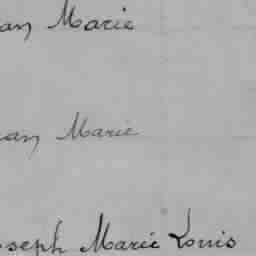 an Marie
an Marie
oseph Marie Louis